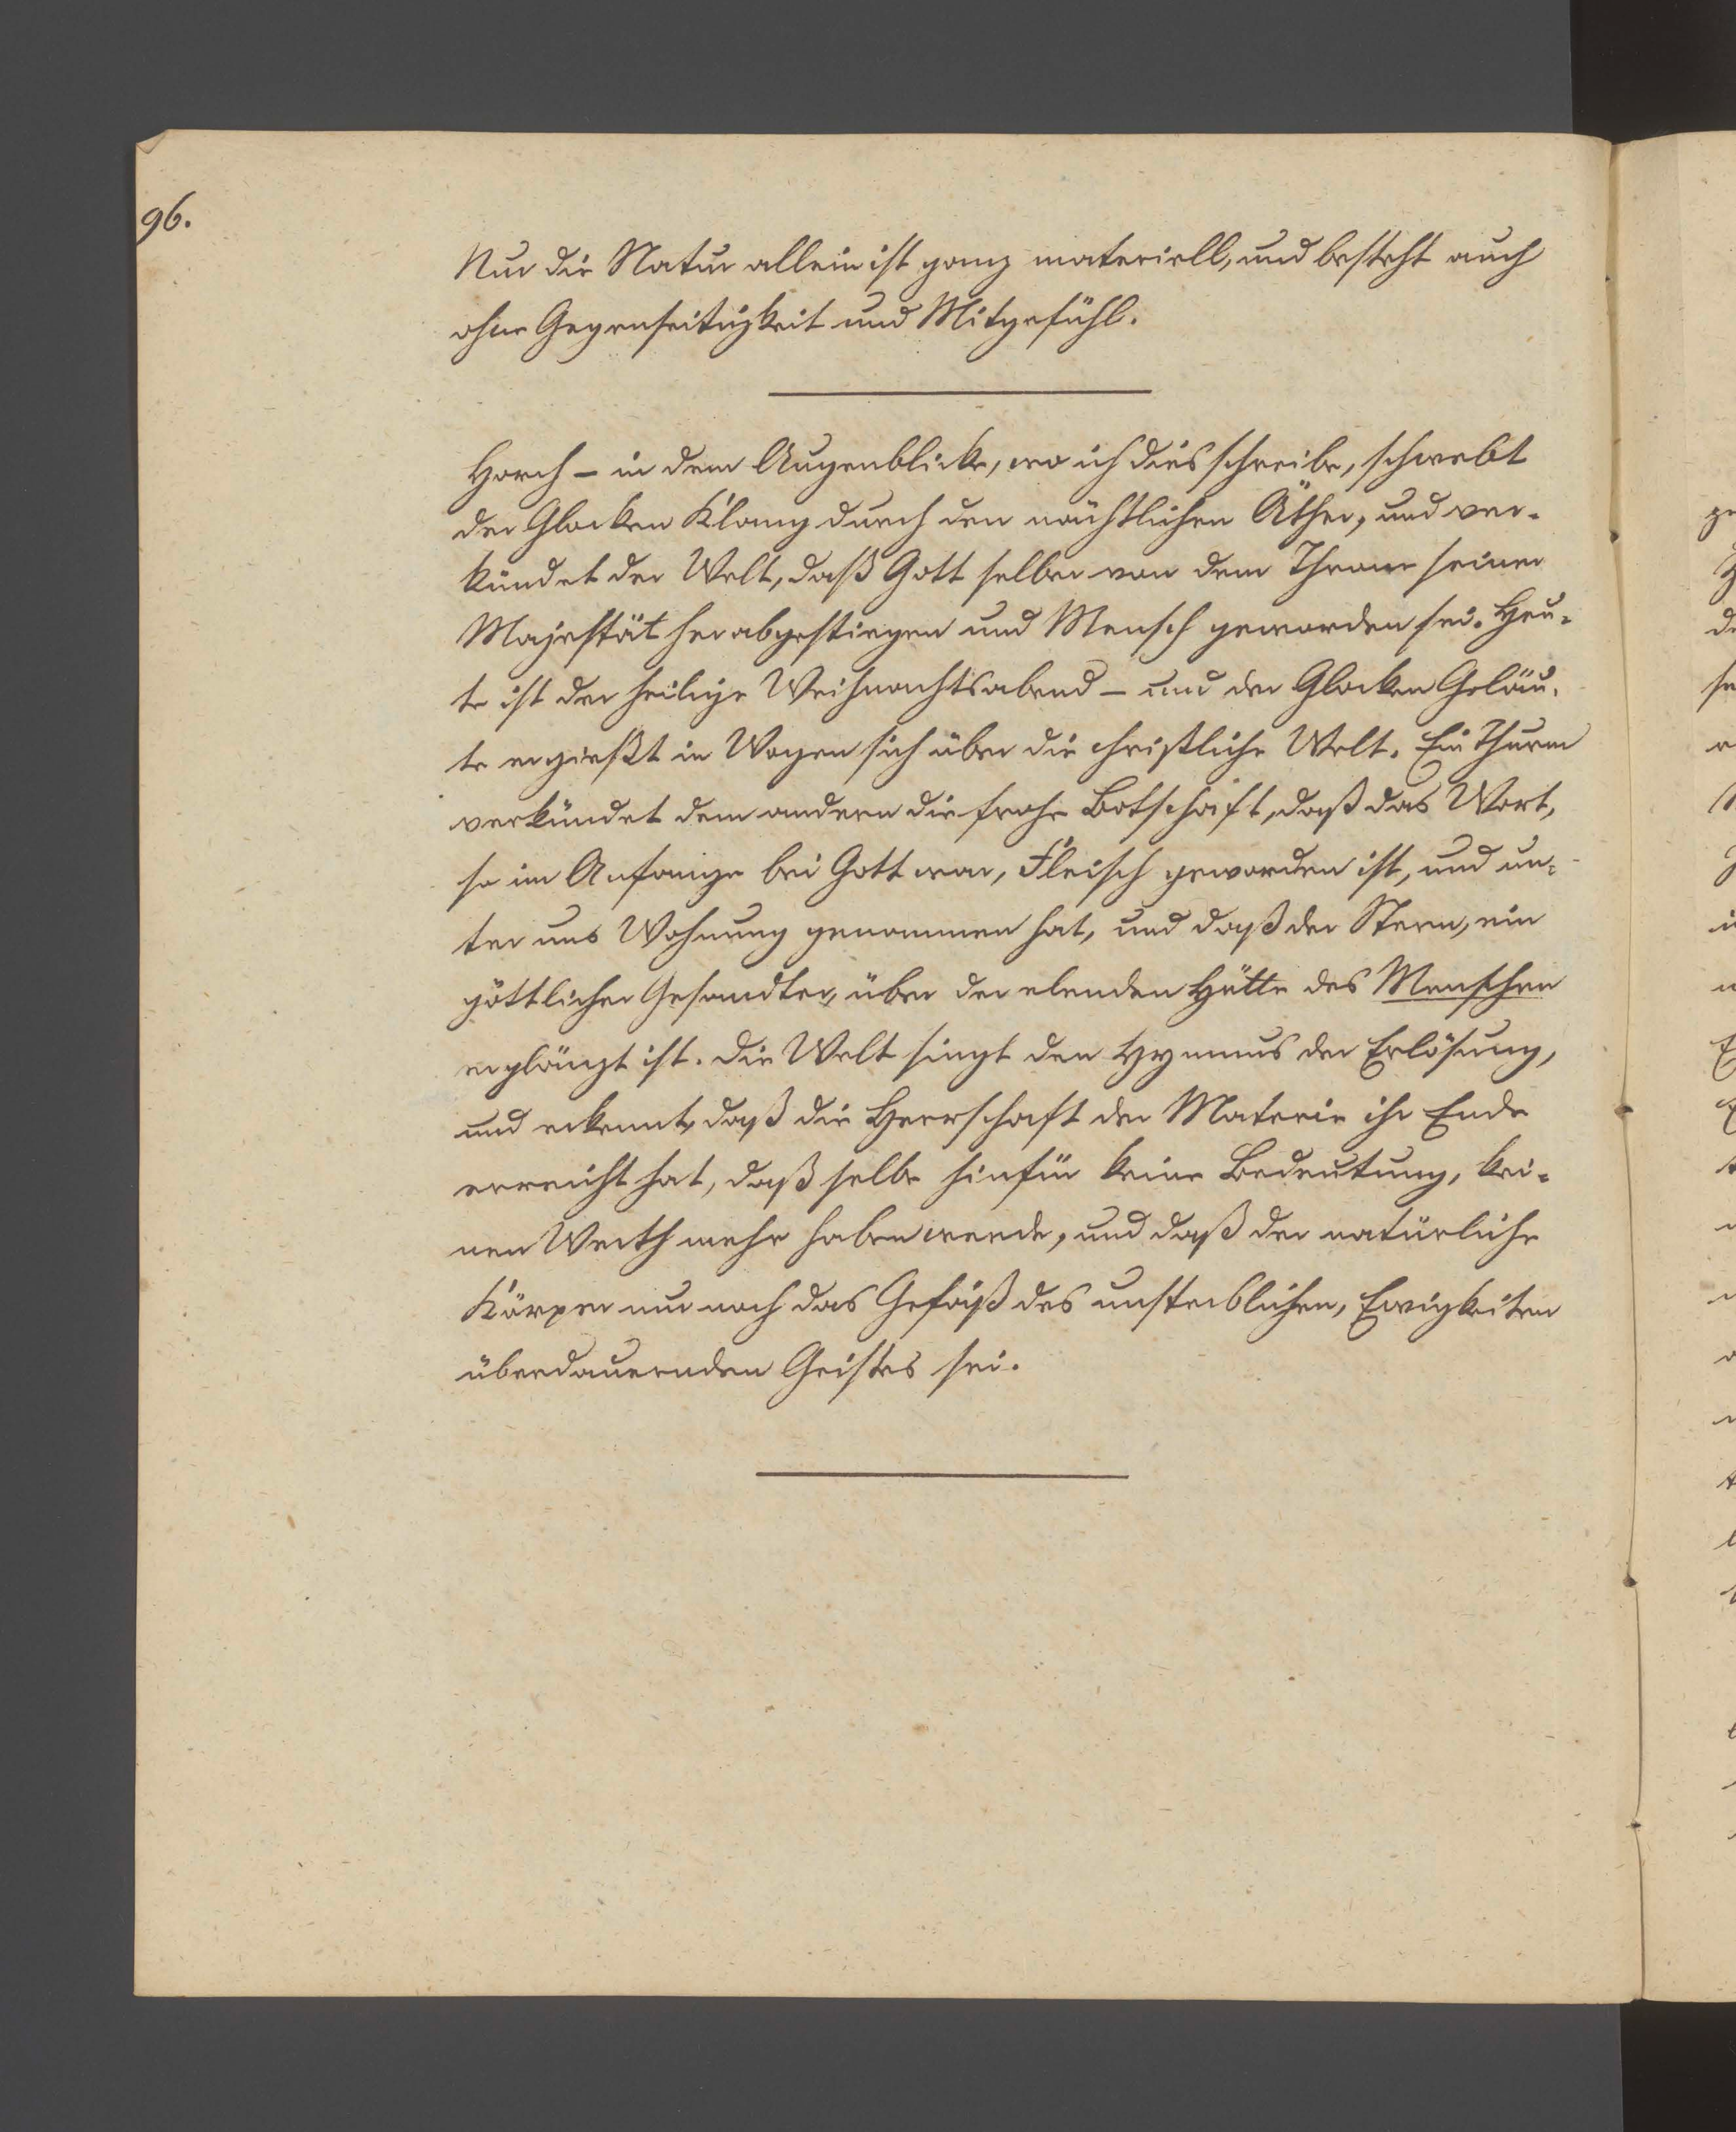 96.
Nur die Natur allein ist ganz materiell, und besteht auch
ohne Gegenseitigkeit und Mitgefühl.
Horch – in dem Augenblicke, wo ich dies schreibe, schwebt
der Glocken Klang durch den nächtlichen Äther, und ver-
kündet der Welt, daß Gott selber von dem Throne seiner
Majestät herabgestiegen und Mensch geworden sei. Heu-
te ist der heilige Weihnachtsabend – und der Glocken Geläu-
te ergießt in Wogen sich über die christliche Welt. Ein Thurm
verkündet dem andern die frohe Botschaft, daß das Wort,
so im Anfange bei Gott war, Fleisch geworden ist, und un-
ter uns Wohnung genommen hat, und daß der Stern, ein
göttlicher Gesandter, über der elenden Hütte des Menschen
erglänzt ist. Die Welt singt den Hymnus der Erlösung,
und erkennt, daß die Herrschaft der Materie ihr Ende
erreicht hat, daß selbe hinfür keine Bedeutung, kei-
nen Werth mehr haben werde, und daß der natürliche
Körper nur noch das Gefäß des unsterblichen, Ewigkeiten
überdauernden Geistes sei.